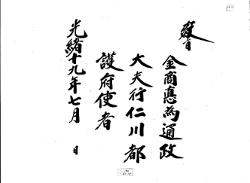 敎旨
金商悳為通政
大夫行仁川都
護府使者
光緖十九年七月 日